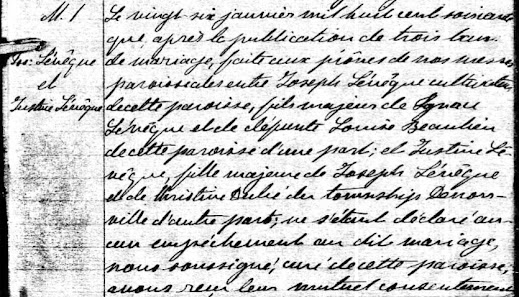 M. 1
Jos. Lévêque
et
Justine Lévêque
Le vingt six janvier mil huit cent soixante
que après la publication de trois ban
de mariage, faite aux prônes de nos messes
paroissiales entre Joseph Lévêque cultivateur
de cette paroisse, fils majeur de Ignace
Lévêque et de défunte Louise Beaulieu
de cette paroisse d'une part; et Justine Lé-
vêque, fille majeure de Joseph Lévêque
et de Christine Dubé du township Denon-
ville d'autre part; ne s'étant déclaré au-
cun empêchement au dit mariage,
nous soussigné, curé de cette paroisse,
avons reçu leur mutuel consentement